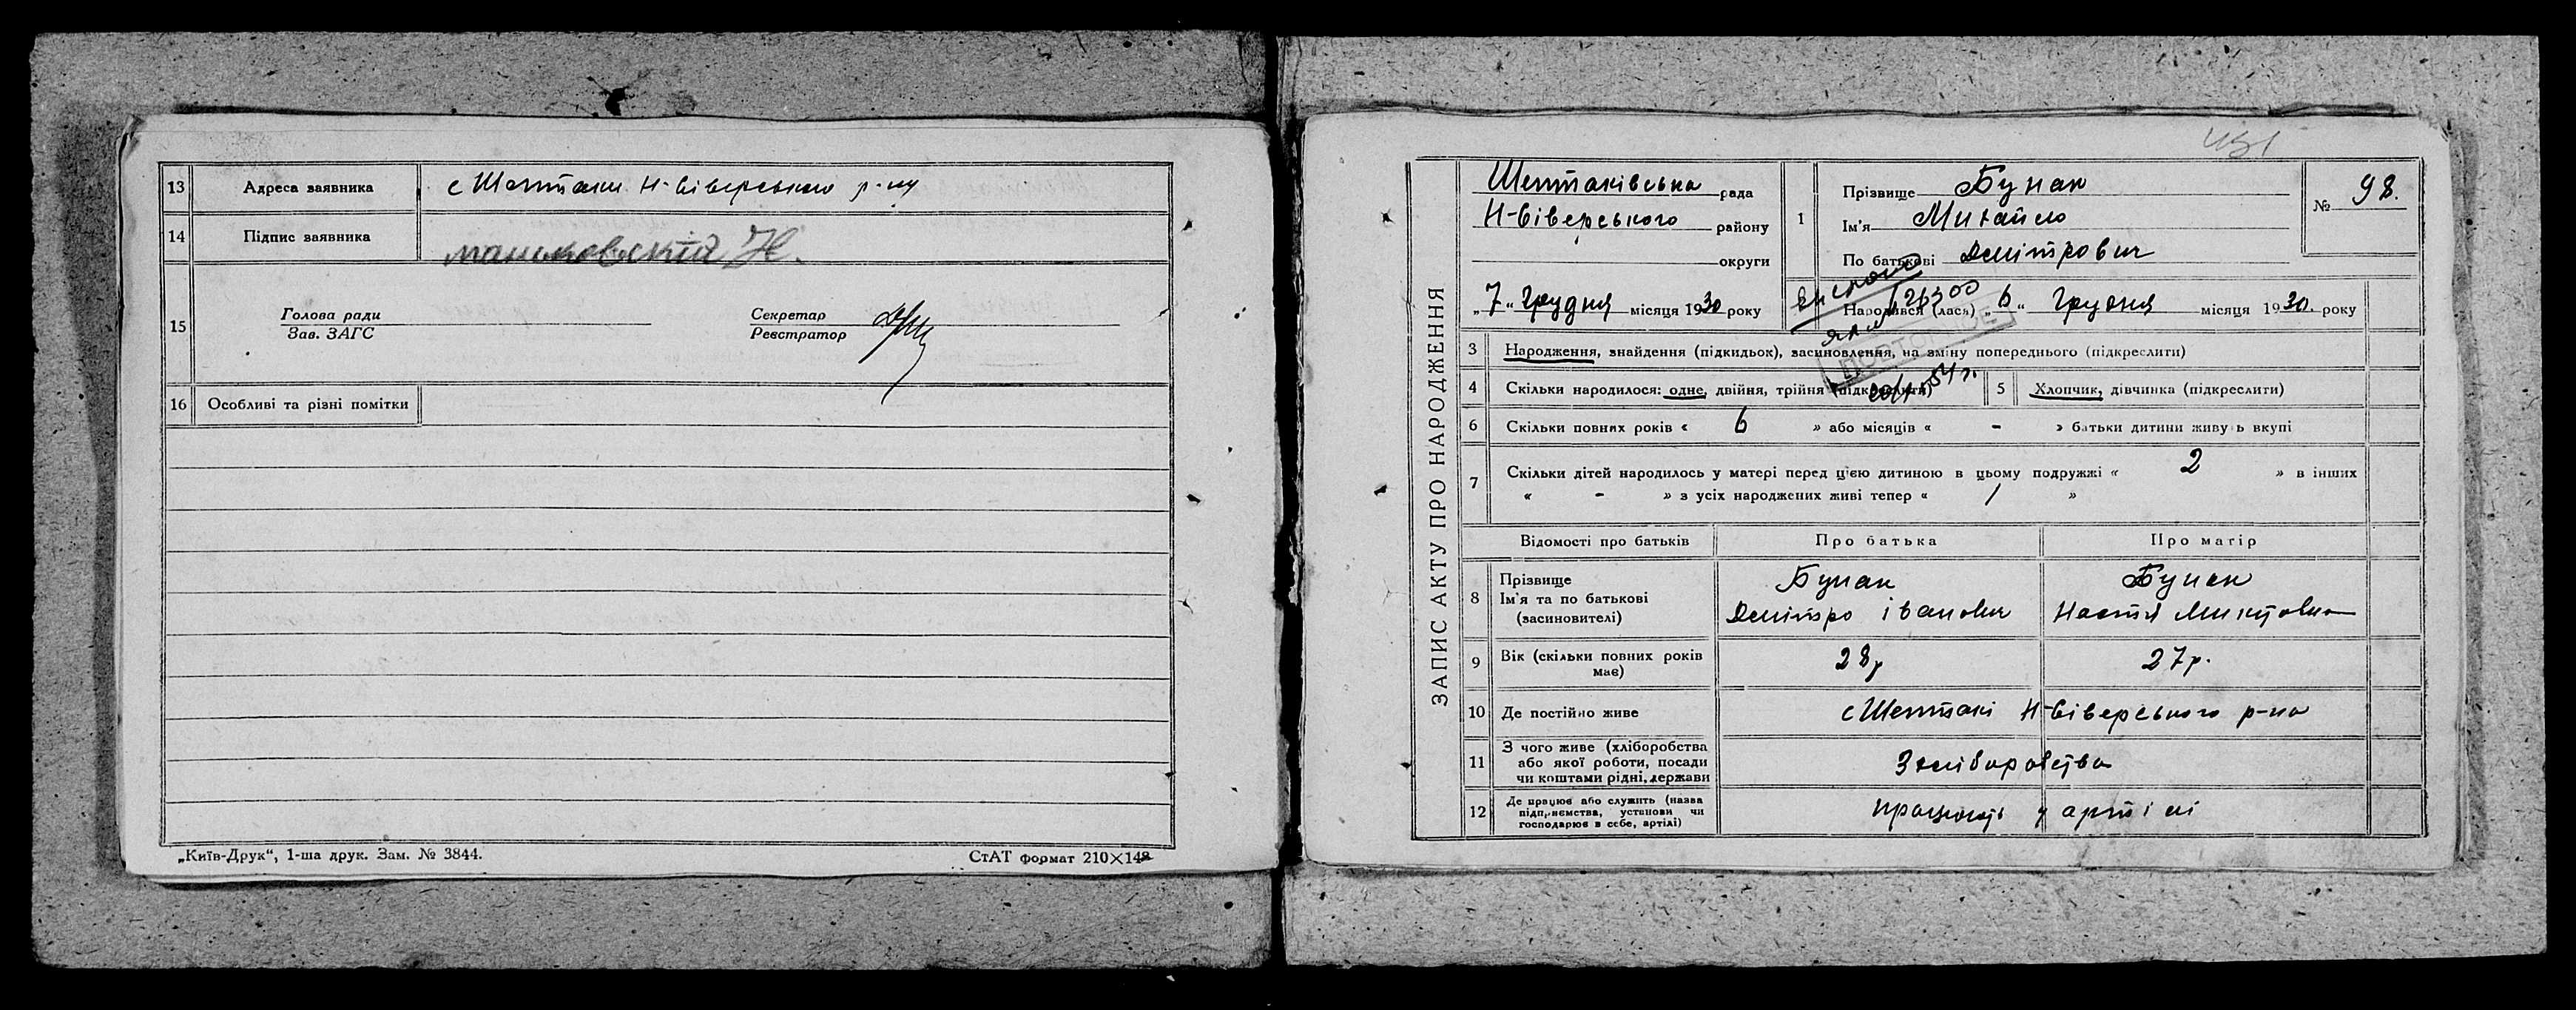 13 Адреса заявника с Шептаки Н-Сіверського р-ну
14 Підпис заявника
15 Голова ради Секретар
Зав. ЗАГС Реєстратор
16 Особливі та різні помітки
„Київ-Друк“, 1-ша друк. Зам. № 3844. СтАТ формат 210×148
ЗАПИС АКТУ ПРО НАРОДЖЕННЯ
Шептаківська рада
Н-Сіверського району
округи
„7“ Грудня місяця 1930 року
1 Прізвище Бунак
Ім'я Михайло
По батькові Дмітрович
№ 98.
Народився (лася) „6“ Грудня місяця 1930. року
ПОВТОРНОЕ
3 Народження, знайдення (підкидьок), засиновлення, на зміну попереднього (підкреслити)
4 Скільки народилося: одне, двійня, трійня (підкреслити) 5 Хлопчик, дівчинка (підкреслити)
6 Скільки повних років « 6 » або місяців « - » батьки дитини живуть вкупі
7 Скільки дітей народилось у матері перед цією дитиною в цьому подружжі « 2 » в інших
« - » з усіх народжених живі тепер « 1 »
Відомості про батьків Про батька Про матір
8 Прізвище Бунак Бунак
Ім'я та по батькові Дмітро Іванович Настя
(засиновителі)
9 Вік (скільки повних років має) 28р 27р.
10 Де постійно живе с Шептакі Н-Сіверського р-на
11 З чого живе (хліборобства
або якої роботи, посади
чи коштами рідні, держави
12 Де працює або служить (назва
підприємства, установи чи
господарює в себе, артілі)
працюють у артілі